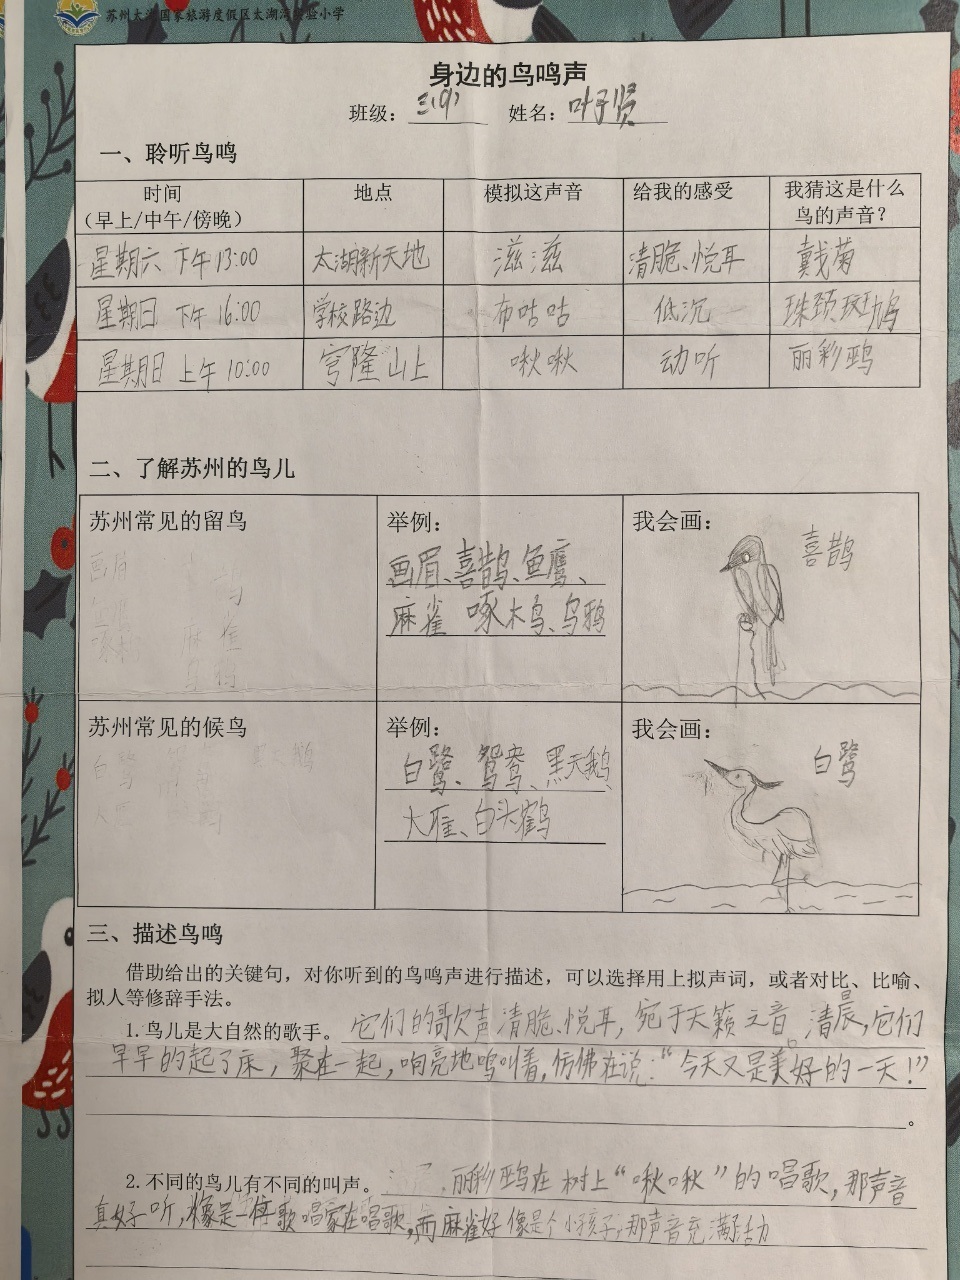 苏州太湖国家旅游度假区太湖湾实验小学
身边的鸟鸣声
班级： 三(9) 姓名：叶子贤
一、聆听鸟鸣
时间 地点 模拟这声音 给我的感受 我猜这是什么
（早上/中午/傍晚） 鸟的声音？
星期六 下午 13:00 太湖新天地 滋滋 清脆、悦耳 戴菊
星期日 下午 16:00 学校路边 布咕咕 低沉 珠颈斑鸠
星期日 上午 10:00 穹隆山上 啾啾 动听 丽彩鹀
二、了解苏州的鸟儿
苏州常见的留鸟 举例： 我会画：
画眉、喜鹊、鱼鹰、 喜鹊
麻雀 啄木鸟、乌鸦
苏州常见的候鸟 举例： 我会画：
白鹭、鸳鸯、黑天鹅 白鹭
大雁、白头鹤
三、描述鸟鸣
借助给出的关键句，对你听到的鸟鸣声进行描述，可以选择用上拟声词，或者对比、比喻、
拟人等修辞手法。
1.鸟儿是大自然的歌手。它们的歌声清脆、悦耳，宛于天籁之音 清晨，它们
早早的起了床，聚在一起，响亮地鸣叫着，仿佛在说：“今天又是美好的一天！”
。
2.不同的鸟儿有不同的叫声。 丽彩鹀在树上“啾啾”的唱歌，那声音
真好听，像是一位歌唱家在唱歌，而麻雀好像是个小孩子，那声音充满活力